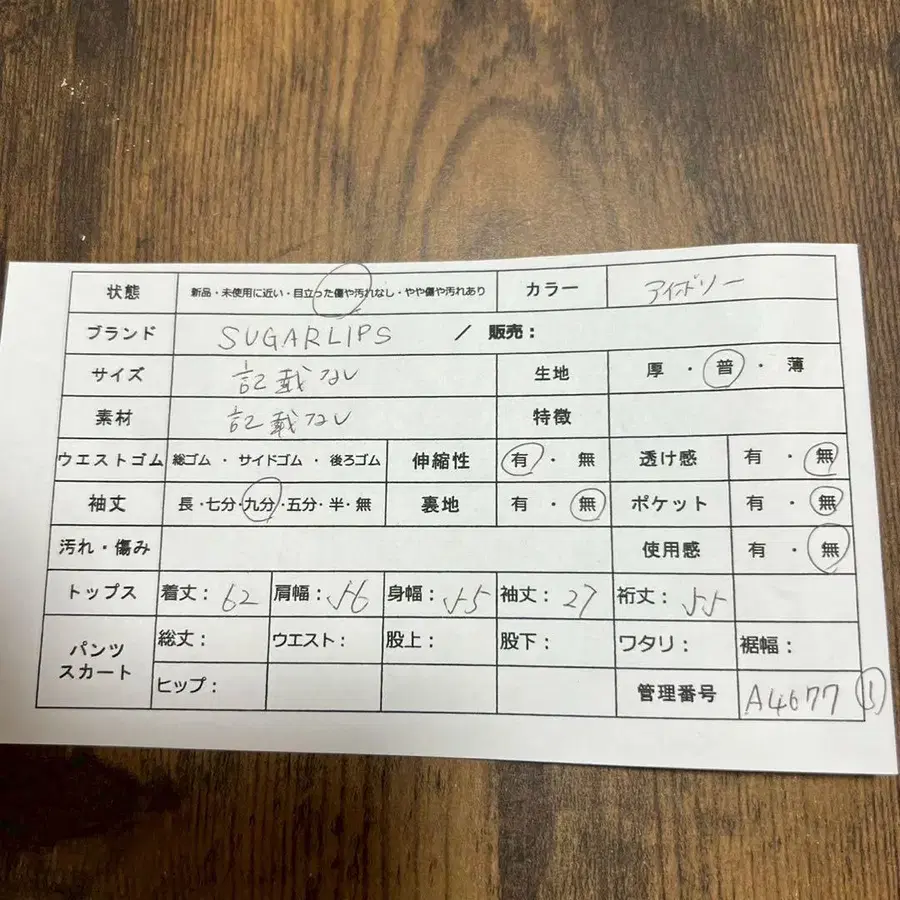 状態 新品・未使用に近い・目立った傷や汚れなし・やや傷や汚れあり カラー アイボリー
ブランド SUGARLIPS / 販売：
サイズ 記載なし 生地 厚・普・薄
素材 記載なし 特徴
ウエストゴム 総ゴム・サイドゴム・後ろゴム 伸縮性 有・無 透け感 有・無
袖丈 長・七分・九分・五分・半・無 裏地 有・無 ポケット 有・無
汚れ・傷み 使用感 有・無
トップス 着丈：62 肩幅：56 身幅：55 袖丈：27 裄丈：55
パンツ スカート 総丈： ウエスト： 股上： 股下： ワタリ： 裾幅：
ヒップ： 管理番号 A4677